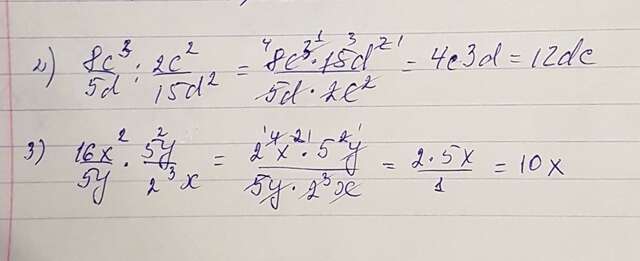 2) 8c³/5d : 2c²/15d² = ⁴8c³¹·15³d²¹/5d·2c² = 4c3d = 12dc
3) 16x²/5y · 5²y/2³x = 2⁴¹x²¹·5²¹y/5y·2³x = 2·5x/1 = 10x